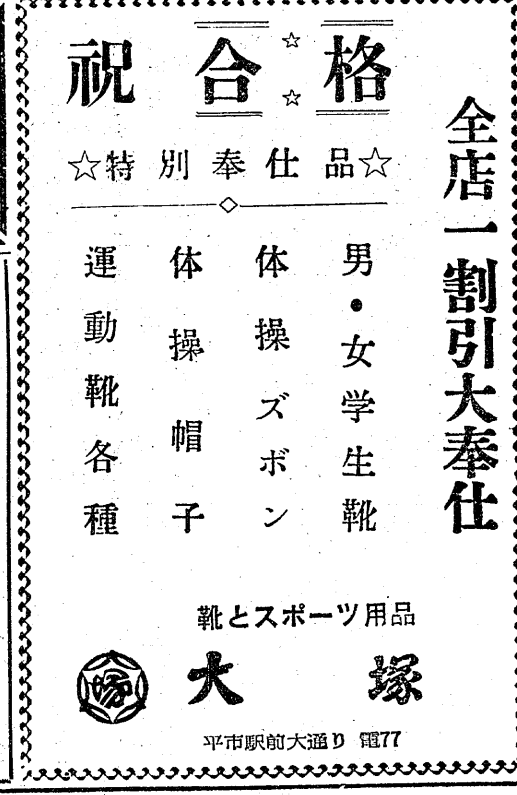 祝合格
全店一割引大奉仕
☆特別奉仕品☆
男・女学生靴
体操ズボン
体操帽子
運動靴各種
靴とスポーツ用品
塚
大塚
平市駅前大通り 電77